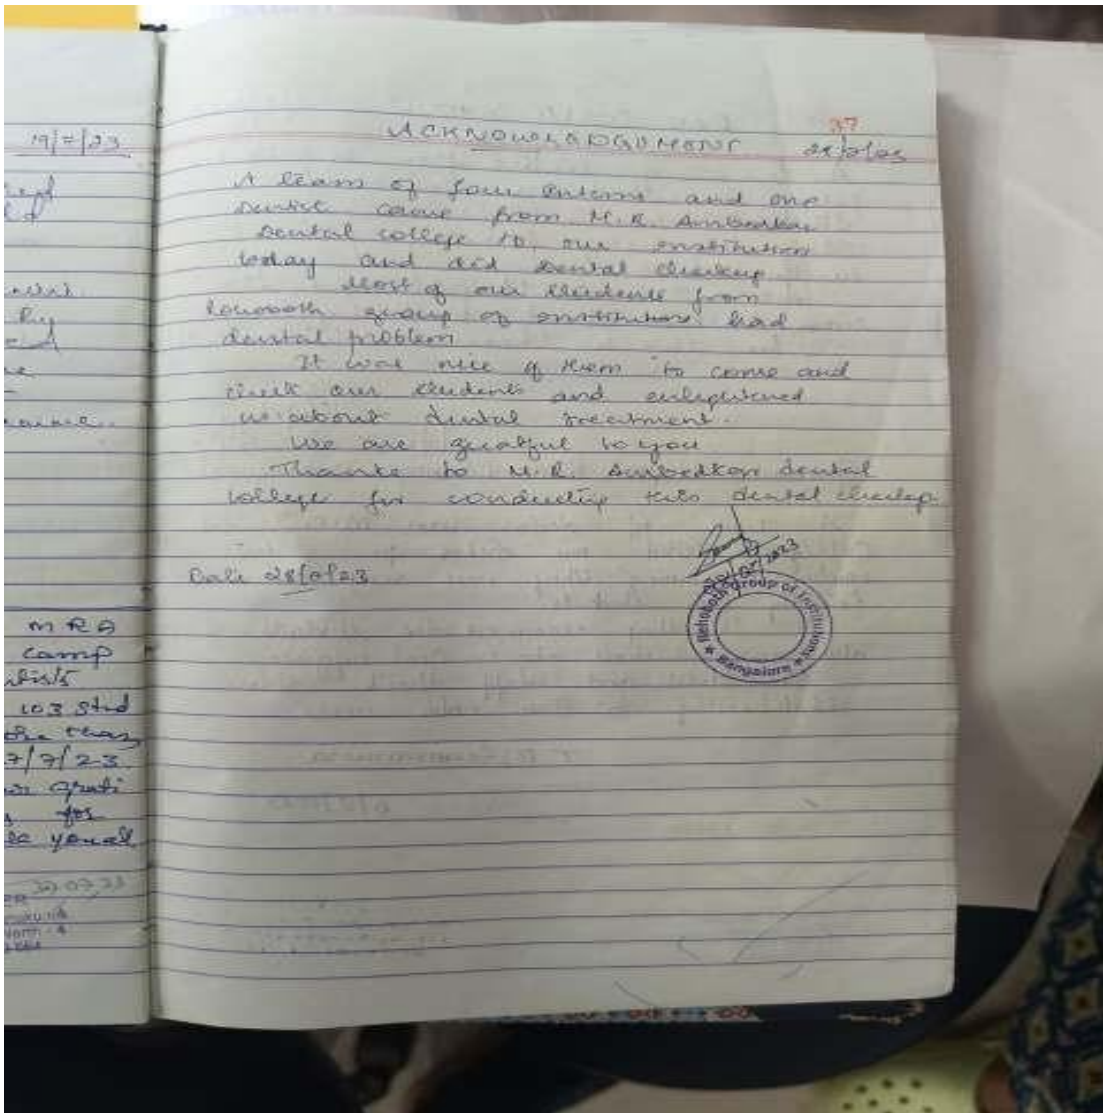 19/7/23
camp
103 Stud
7/7/23
for
MRA
37
ACKNOWLEDGUMENT
A team of four interns and one
dentist came from M.R. Ambedkar
Dental college to our institution
today and did Dental checkup.
Most of our students from
group of institutions had
dental problem
It was nice of them to come and
check our students and enlightened
us about dental treatment.
We are greatful to you
Thanks to M.R. Ambedkar dental
college for conducting this dental checkup
Date 28/ /23
Rehoboth Group of Institutions
★ Bangalore ★